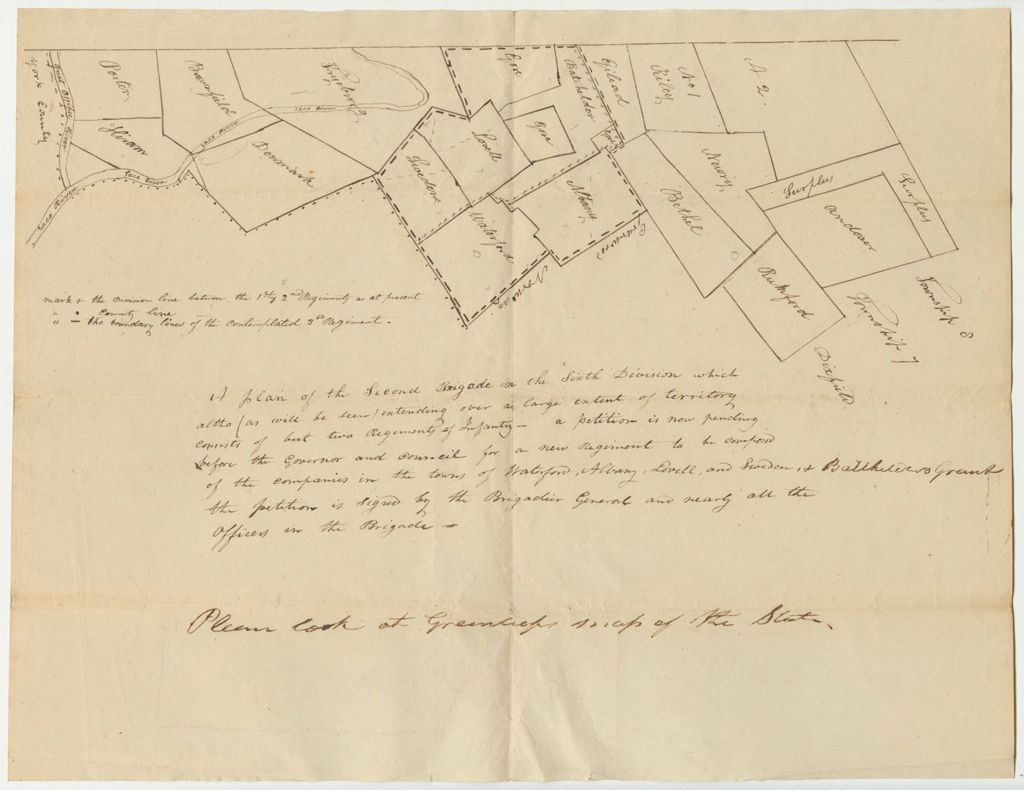 York County
Great Ossipee River
Porter
Hiram
Brownfield
Fryeburg
Saco River
Saco River
Saco River
Saco River
Denmark
Sweden
Lovell
Waterford
Gore
Gore
Batchelder
Gilead
Gore
Albany
Norway
Greenwood
Riley
No 1
A 2.
Newry
Bethel
Surplus
Surplus
Andover
Rumford
Township 8
Township 7
Dixfield
mark + the Division line between the 1st & 2nd Regiments as at present
" • County line
" – the boundary lines of the contemplated 3d Regiment.
A plan of the Second Brigade in the Sixth Division which
altho (as will be seen) extending over a large extent of territory
consists of but two Regiments of Infantry – a petition is now pending
before the Governor and council for a new Regiment to be composed
of the companies in the towns of Waterford, Albany, Lovell, and Sweden, & Batchelders Grant
the petition is signed by the Brigadier General and nearly all the
Officers in the Brigade –
Please look at Greenleafs map of the State